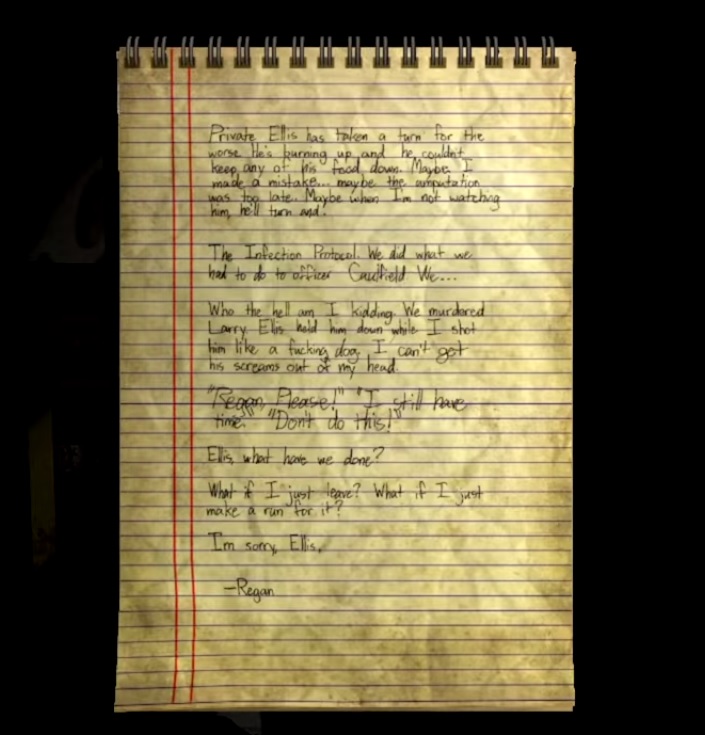 Private Ellis has taken a turn for the
worse. He's burning up and he couldn't
keep any of his food down. Maybe I
made a mistake... maybe the amputation
was too late. Maybe when I'm not watching
him, he'll turn and.
The Infection Protocol. We did what we
had to do to officer Caulfield We...
Who the hell am I kidding. We murdered
Larry. Ellis held him down while I shot
him like a fucking dog. I can't get
his screams out of my head.
"Regan, Please!" "I still have
time." "Don't do this!"
Ellis, what have we done?
What if I just leave? What if I just
make a run for it?
I'm sorry, Ellis,
-Regan